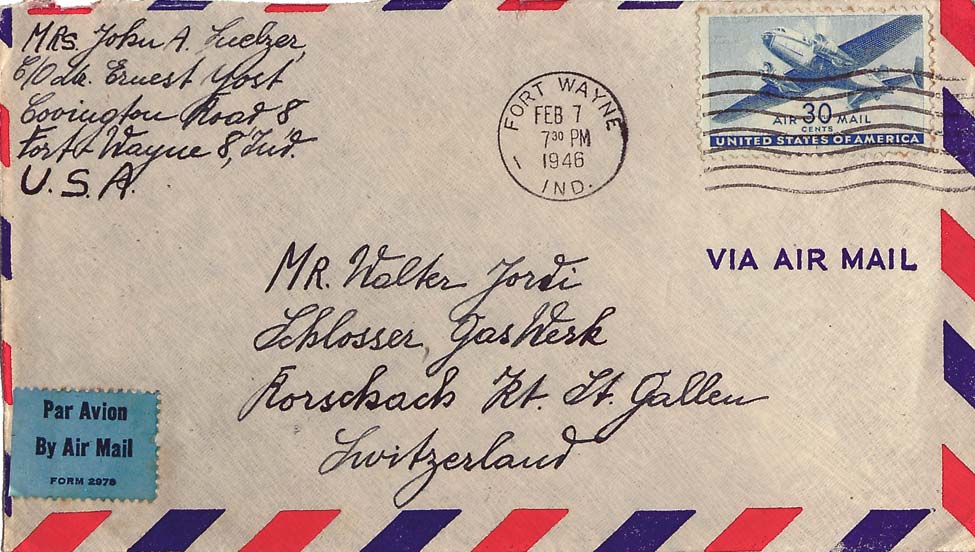 MRS. John A. Luelzer,
C/O Mr. Ernest Yost
Covington Road 8
Fort Wayne 8, Ind.
U.S.A.
FORT WAYNE
FEB 7
7 30 PM
1946
1
IND.
AIR 30 MAIL
CENTS
UNITED STATES OF AMERICA
VIA AIR MAIL
MR. Walter Jordi
Schlosser, GasWerk
Rorschach Kt. St. Gallen
Switzerland
Par Avion
By Air Mail
FORM 2978